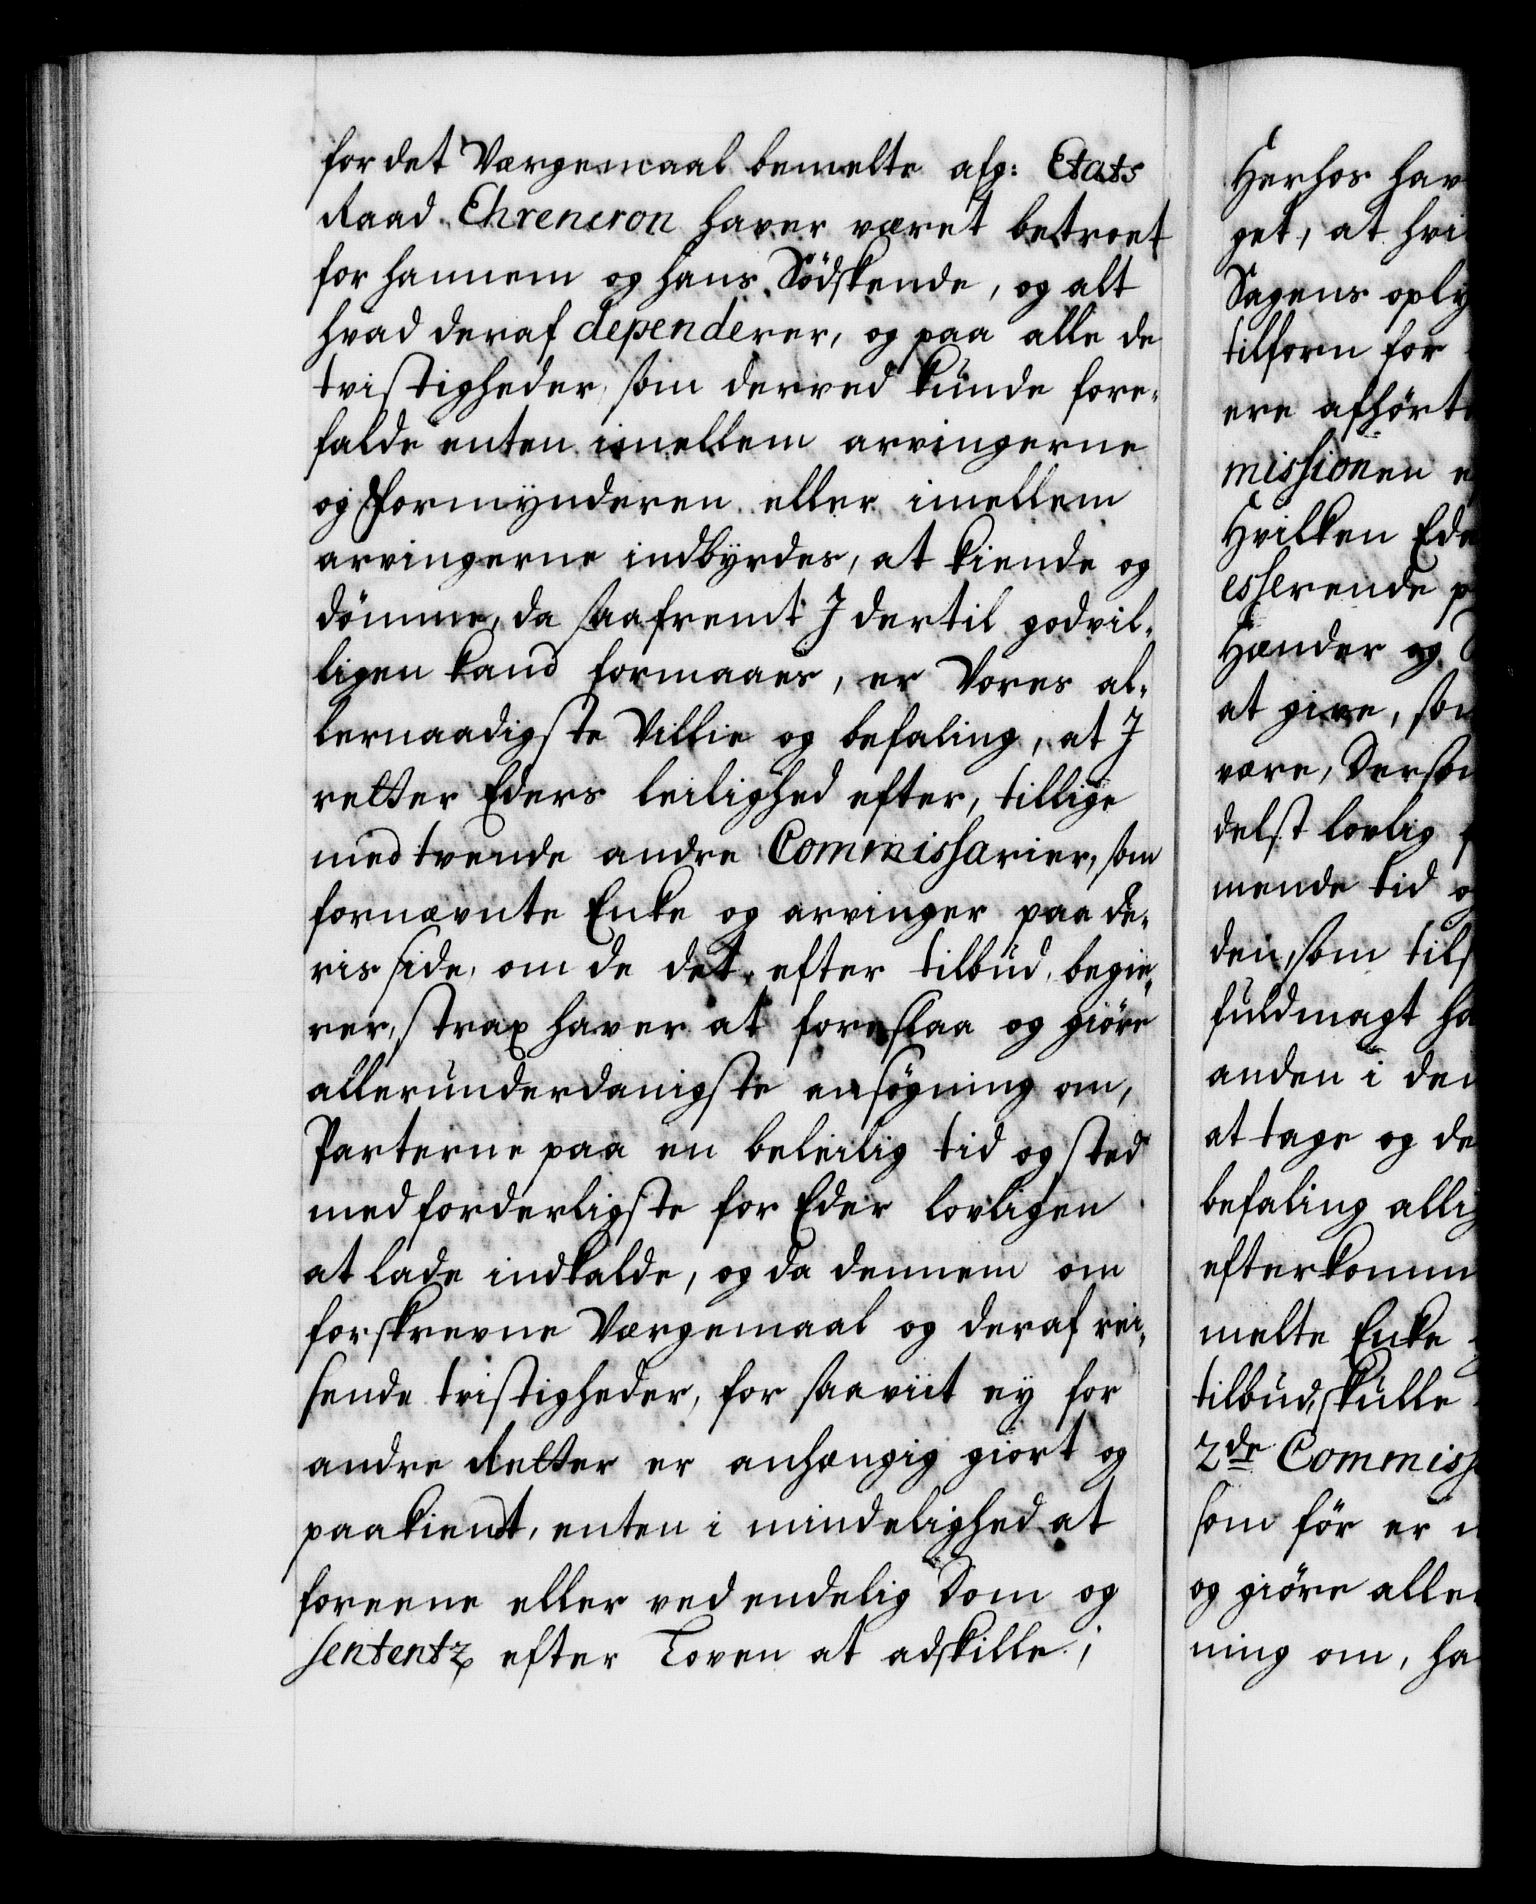 for det Værgemaal bemelte afg: Etats
Raad Ehrencron haver været betroet
for hannem og hans Södskende, og alt
hvad deraf dependerer, og paa alle de
tvistigheder, som derved kunde fore-
falde enten imellem arvingerne
og Formynderen eller imellem
arvingerne indbyrdes, at kiende og
dömme, da saafremt I dertil godvil-
ligen kand formaaes, er Vores al-
lernaadigste Villie og befaling, at I
retter Eders leilighed efter, tillige
med tvende andre Commissarier, som
fornævnte Enke og arvinger paa de-
ris side, om de det, efter tilbud, begie-
rer, strax haver at foreslaa og giöre
allerunderdanigste ansögning om,
Parterne paa en beleilig tid og sted
med forderligste for Eder lovligen
at lade indkalde, og da dennem om
forskrevne Værgemaal og deraf rei-
sende tvistigheder, for saaviit ey for
andre Retter er anhængig giort og
paakiendt, enten i mindelighed at
foreene eller ved endelig Dom og
sententz efter Loven at adskille;
Herhos hav
get, at hvi
Sagens oply
tilforn for
ere afhørt
missionen e
Hvilken Ede
esserende p
Hænder og
at give, som
være, Dersom
delst lovlig f
mende tid og
den, som tils
fuldmagt ha
anden i den
at tage og de
befaling allig
efterkomm
melte Enke
tilbud, skulle
2de Commiss
som för er n
og giöre aller
ning om, ha